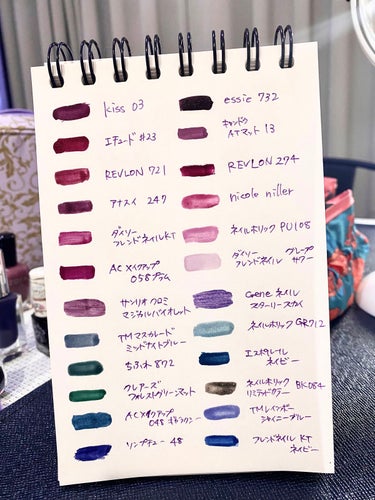 kiss 03
エチュード #23
REVLON 721
アナスイ 247
ダイソー
フレンドネイル KT
ACメイクアップ
058 プラム
サンリオ クロミ
マジカルバイオレット
TMマスカレード
ミッドナイトブルー
ちふれ 872
クレアーズ
フォレストグリーンマット
ACメイクアップ
048 ギャラクシー
リンプチュー 48
essie 732
キャンドゥ
ATマット 13
REVLON 274
nicole miller
ネイルホリック PU108
ダイソー グレープ
フレンドネイル サワー
Gene ネイル
スターリースカイ
ネイルホリック GR712
エスポルール
ネイビー
ネイルホリック BK084
リミテッドカラー
TMレインボー
シャイニーブルー
フレンドネイル KT
ネイビー